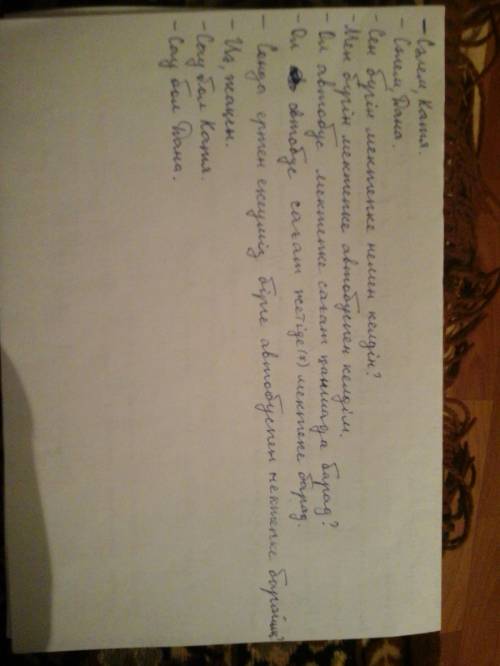 - Сәлем, Катя.
- Сәлем, Дана.
- Сен бүгін мектепке немен келдің?
- Мен бүгін мектепке автобуспен келдім.
- Ол автобус мектепке сағат қаншада барад?
- Ол автобус сағат жетіде(7) мектепке барад.
- Сенда ертен екеуміз бірге автобуспен мектепке барайық?
- Иә, жақсы.
- Сау бол Катя.
- Сау бол Дана.